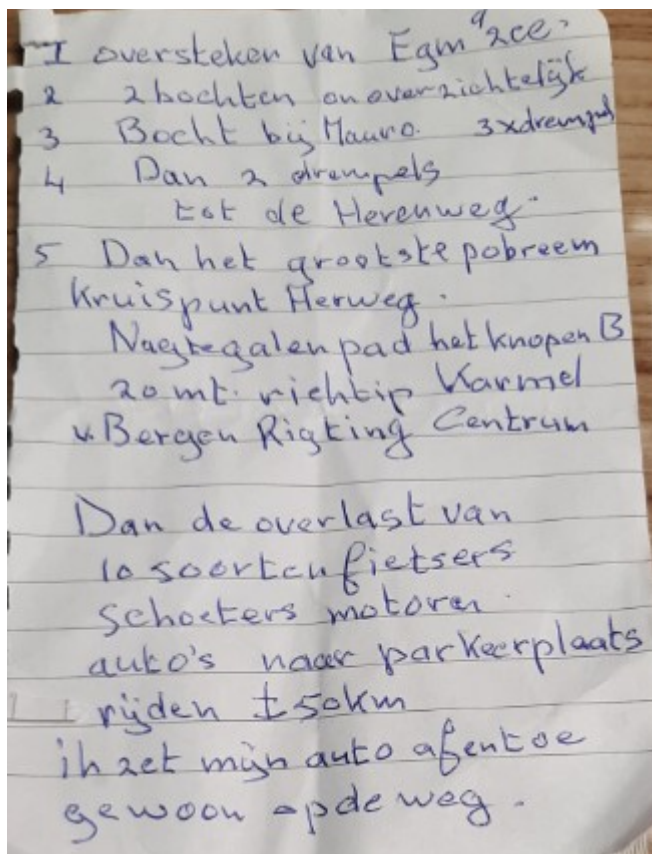 1 oversteken van Egm a zee.
2 2 bochten onoverzichtelijk
3 Bocht bij Mauro. 3xdrempel
4 Dan 2 drempels
tot de Herenweg.
5 Dan het grootste pobreem
Kruispunt Herweg.
Nagtegalenpad het knopen B
20 mt. richtip Karmel
v. Bergen Rigting Centrum
Dan de overlast van
10 soorten fietsers
Schoeters motoren.
auto's naar parkeerplaats
rijden ± 50km
ik zet mijn auto afentoe
gewoon op de weg.